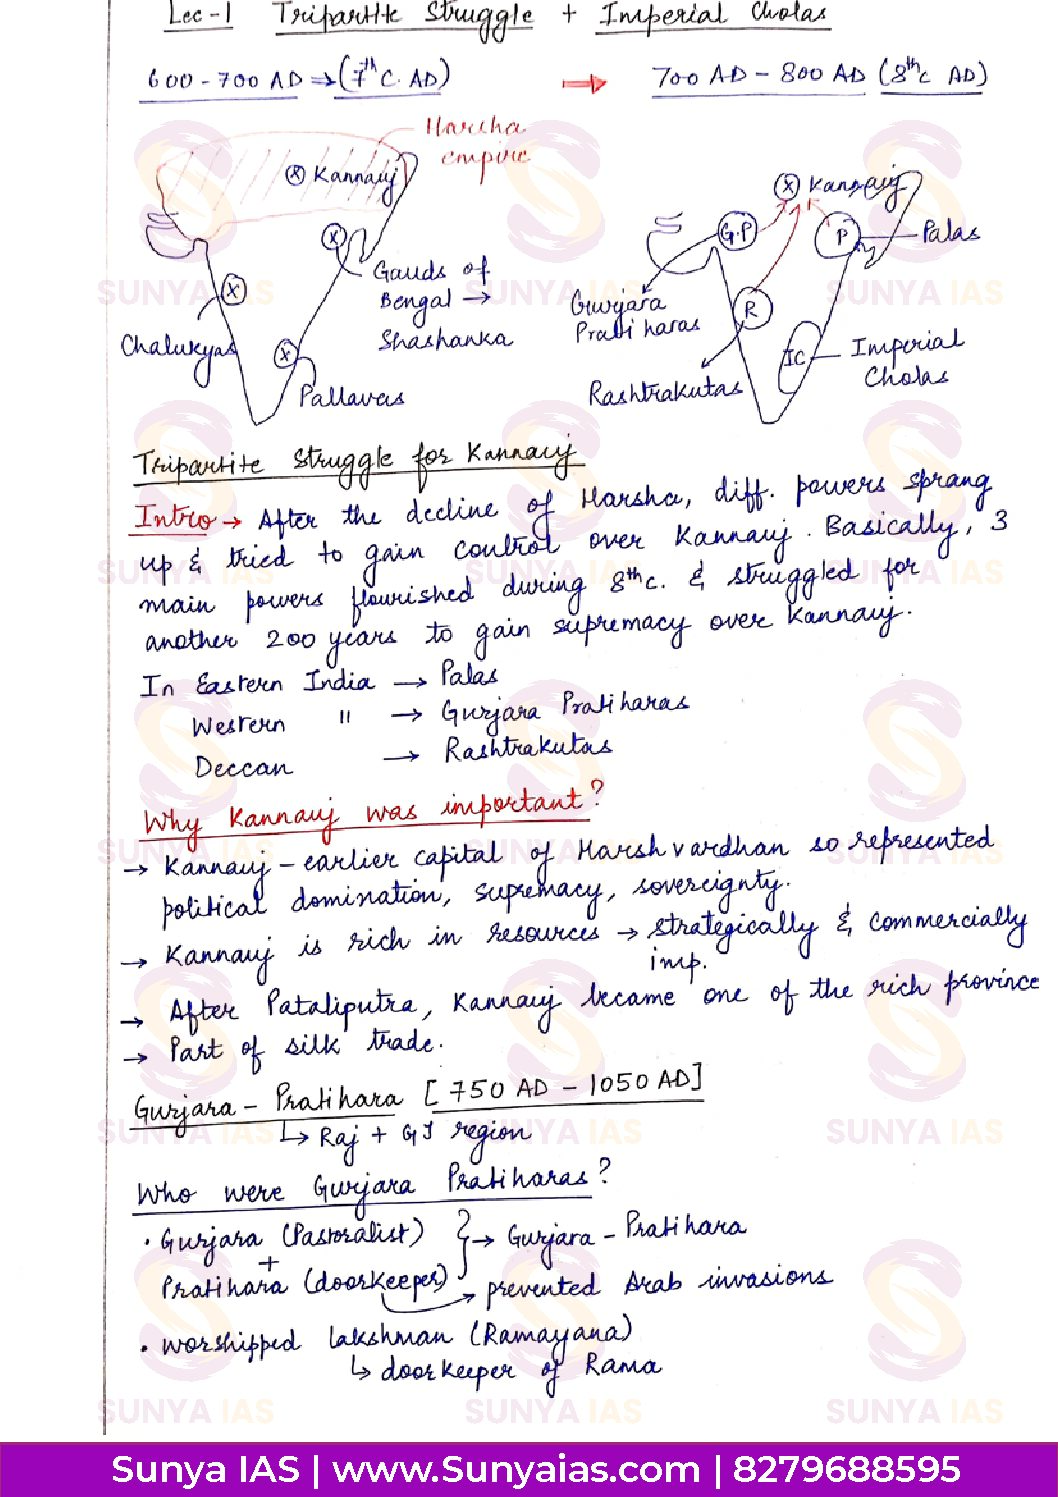 Lec-1 Tripartite Struggle + Imperial Cholas
600-700 AD ⇒ (7th C. AD) → 700 AD - 800 AD (8th c AD)
Harsha
empire
ⓧ Kannauj
ⓧ
Gauds of
Bengal →
Shashanka
ⓧ
Chalukyas
ⓧ
Pallavas
ⓧ Kannauj
G.P
P
Palas
Gurjara
Pratiharas
R
Rashtrakutas
IC
Imperial
Cholas
Tripartite Struggle for Kannauj
Intro → After the decline of Harsha, diff. powers sprang
up & tried to gain control over Kannauj. Basically, 3
main powers flourished during 8th c. & struggled for
another 200 years to gain supremacy over Kannauj.
In Eastern India → Palas
Western " → Gurjara Pratiharas
Deccan → Rashtrakutas
Why Kannauj was important?
→ Kannauj - earlier capital of Harshvardhan so represented
political domination, supremacy, sovereignty.
→ Kannauj is rich in resources → strategically & commercially
imp.
→ After Pataliputra, Kannauj became one of the rich province
→ Part of silk trade.
Gurjara - Pratihara [750 AD - 1050 AD]
↳ Raj + GJ region
Who were Gurjara Pratiharas?
• Gurjara (Pastoralist) } → Gurjara - Pratihara
+
Pratihara (doorkeeper) → prevented Arab invasions
• worshipped lakshman (Ramayana)
↳ doorkeeper of Rama
SUNYA IAS
Sunya IAS | www.Sunyaias.com | 8279688595